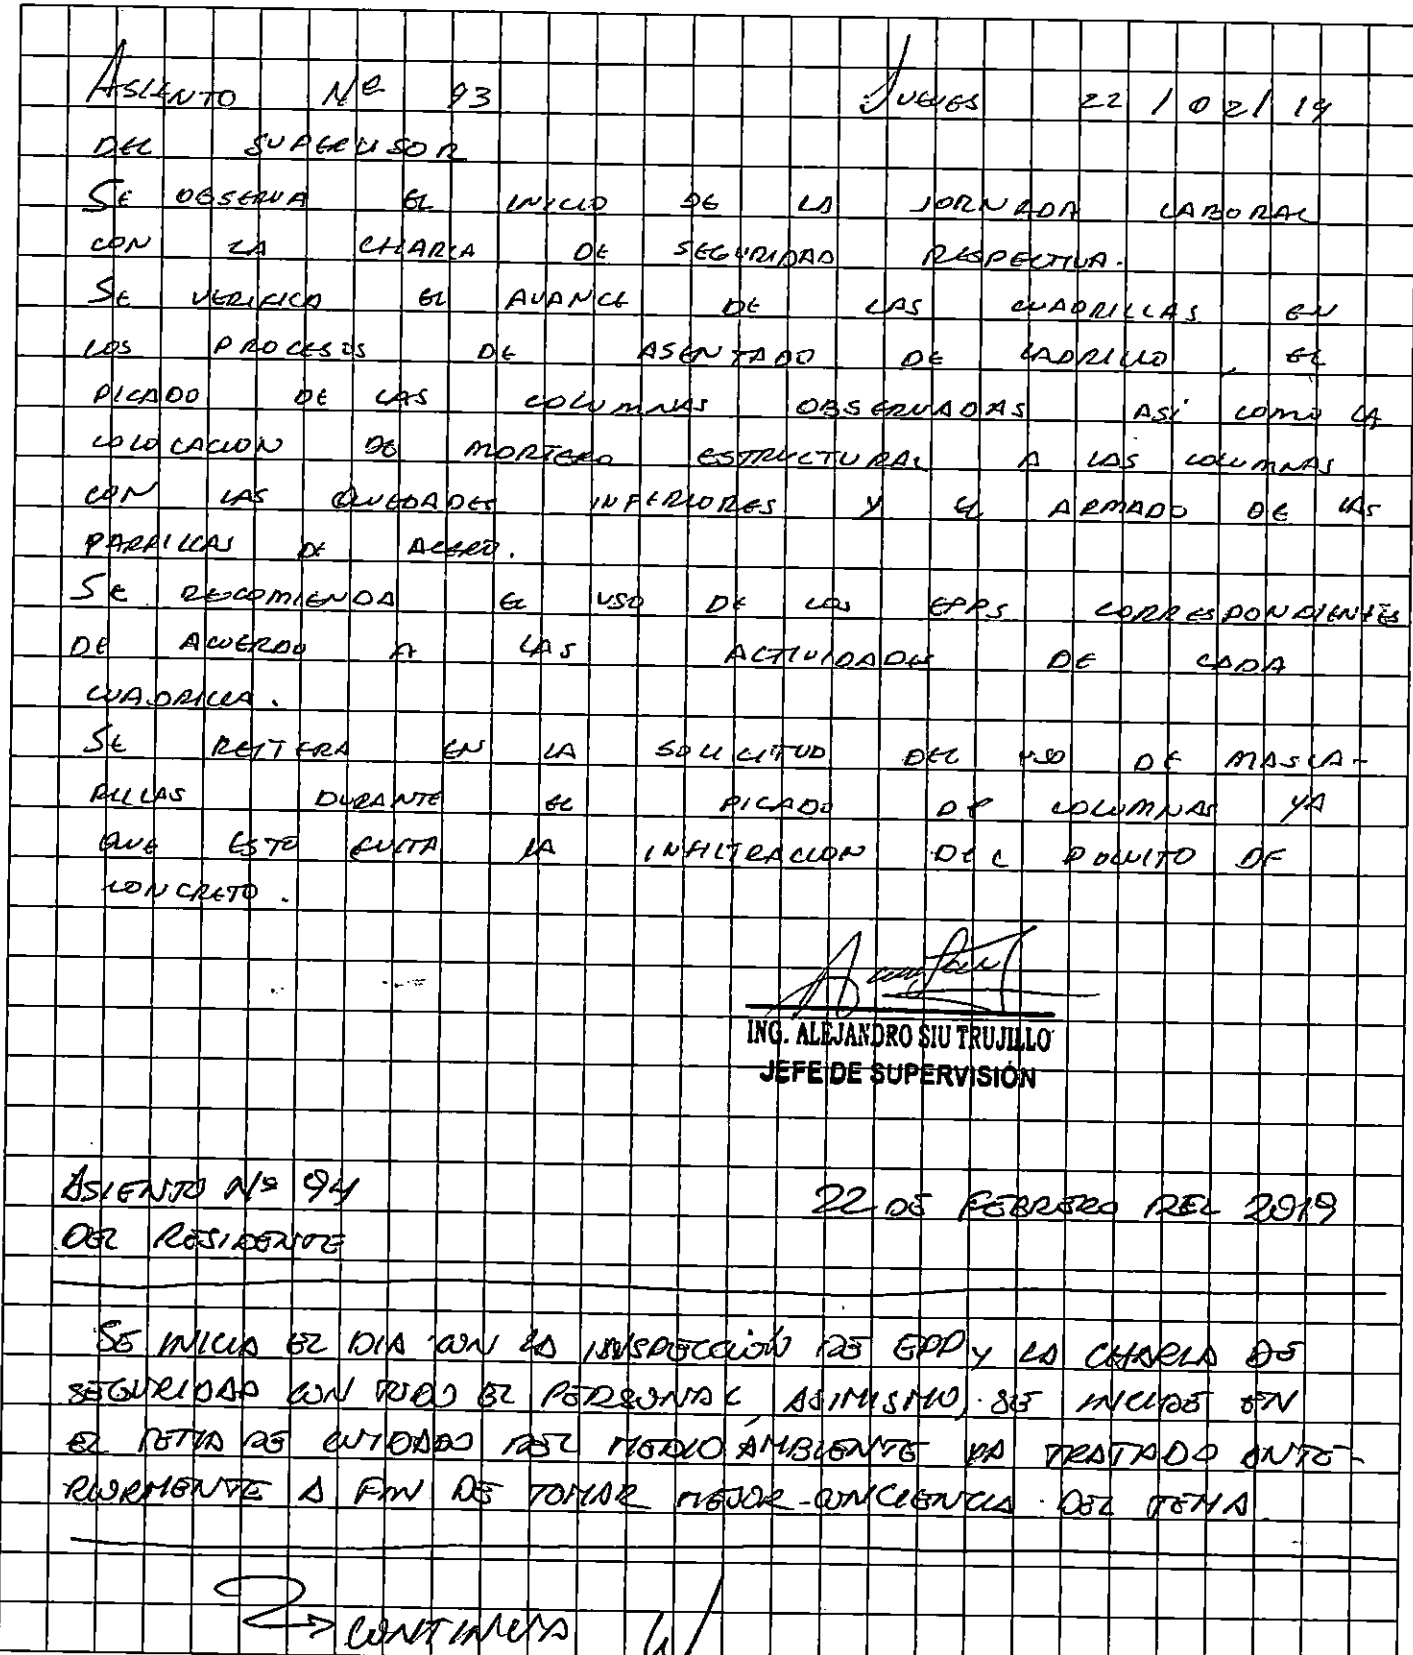 ASIENTO Nº 93 JUEVES 22 / 02 / 19
DEL SUPERVISOR
SE OBSERVA EL INICIO DE LA JORNADA LABORAL
CON LA CHARLA DE SEGURIDAD RESPECTIVA.
SE VERIFICA EL AVANCE DE LAS CUADRILLAS EN
LOS PROCESOS DE ASENTADO DE LADRILLO, EL
PICADO DE LAS COLUMNAS OBSERVADAS ASÍ COMO LA
COLOCACION DE MORTERO ESTRUCTURAL A LAS COLUMNAS
CON LAS INFERIORES Y EL ARMADO DE LAS
PARRILLAS DE ACERO.
SE RECOMIENDA EL USO DE LOS EPPS CORRESPONDIENTES
DE ACUERDO A LAS ACTIVIDADES DE CADA
CUADRILLA.
SE REITERA EN LA SOLICITUD DEL USO DE MASCA-
RILLAS DURANTE EL PICADO DE COLUMNAS YA
QUE ESTO EVITA LA INFILTRACION DEL POLVITO DE
CONCRETO.
ING. ALEJANDRO SIU TRUJILLO
JEFE DE SUPERVISIÓN
ASIENTO Nº 94 22 DE FEBRERO DEL 2019
DEL RESIDENTE
SE INICIA EL DIA CON LA INSPECCIÓN DE EPP y LA CHARLA DE
SEGURIDAD CON TODO EL PERSONAL, ASIMISMO, SE INCIDE EN
EL TEMA DE CUIDADO DEL MEDIO AMBIENTE YA TRATADO ANTE-
RIORMENTE A FIN DE TOMAR MEJOR CONCIENCIA DEL TEMA
CONTINUA